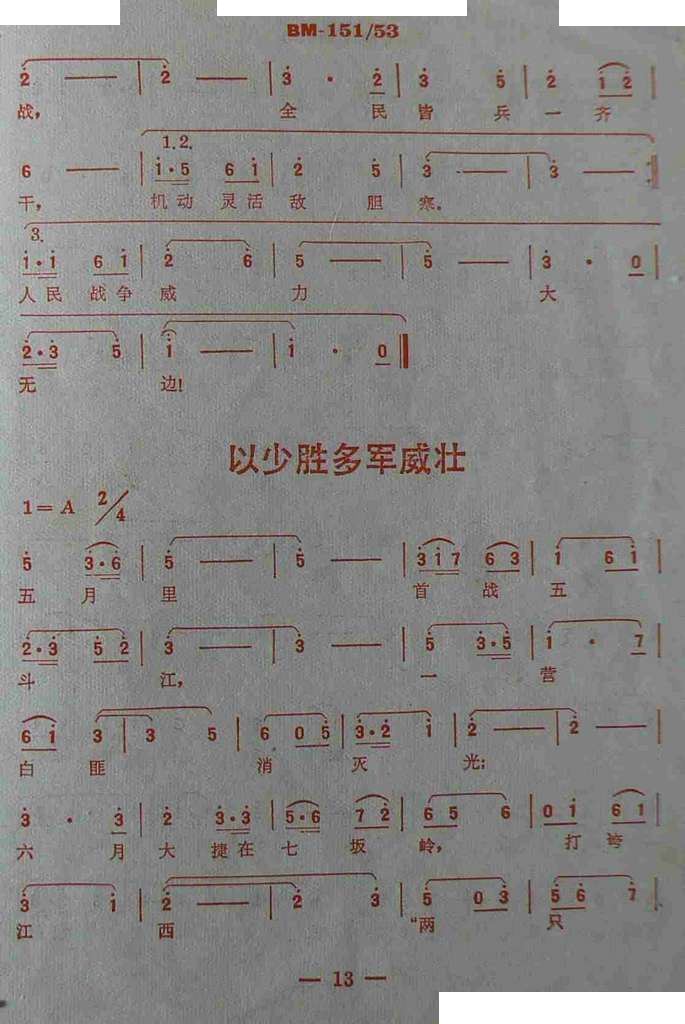 BM-151/53
2 —— 2 —— 3 · 2 3 5 2 1 2
战, 全 民 皆 兵 一 齐
1.2.
6 —— 1·5 6 1 2 5 3 —— 3 ——
干, 机动 灵活 敌 胆 寒。
3.
1·1 6 1 2 6 5 —— 5 —— 3 · 0
人民 战争 威 力 大
2·3 5 1 —— 1 · 0
无 边!
以少胜多军威壮
1=A 2/4
5 3·6 5 —— 5 —— 3 1 7 6 3 1 6 1
五 月 里 首 战 五
2·3 5 2 3 —— 3 —— 5 3·5 1 · 7
斗 江, 一 营
6 1 3 3 5 6 0 5 3·2 1 2 —— 2 ——
白 匪 消 灭 光;
3 · 3 2 3·3 5·6 7 2 6 5 6 0 1 6 1
六 月 大 捷在 七 坂 岭, 打 垮
3 1 2 —— 2 3 5 0 3 5 6 7
江 西 “两 只
— 13 —